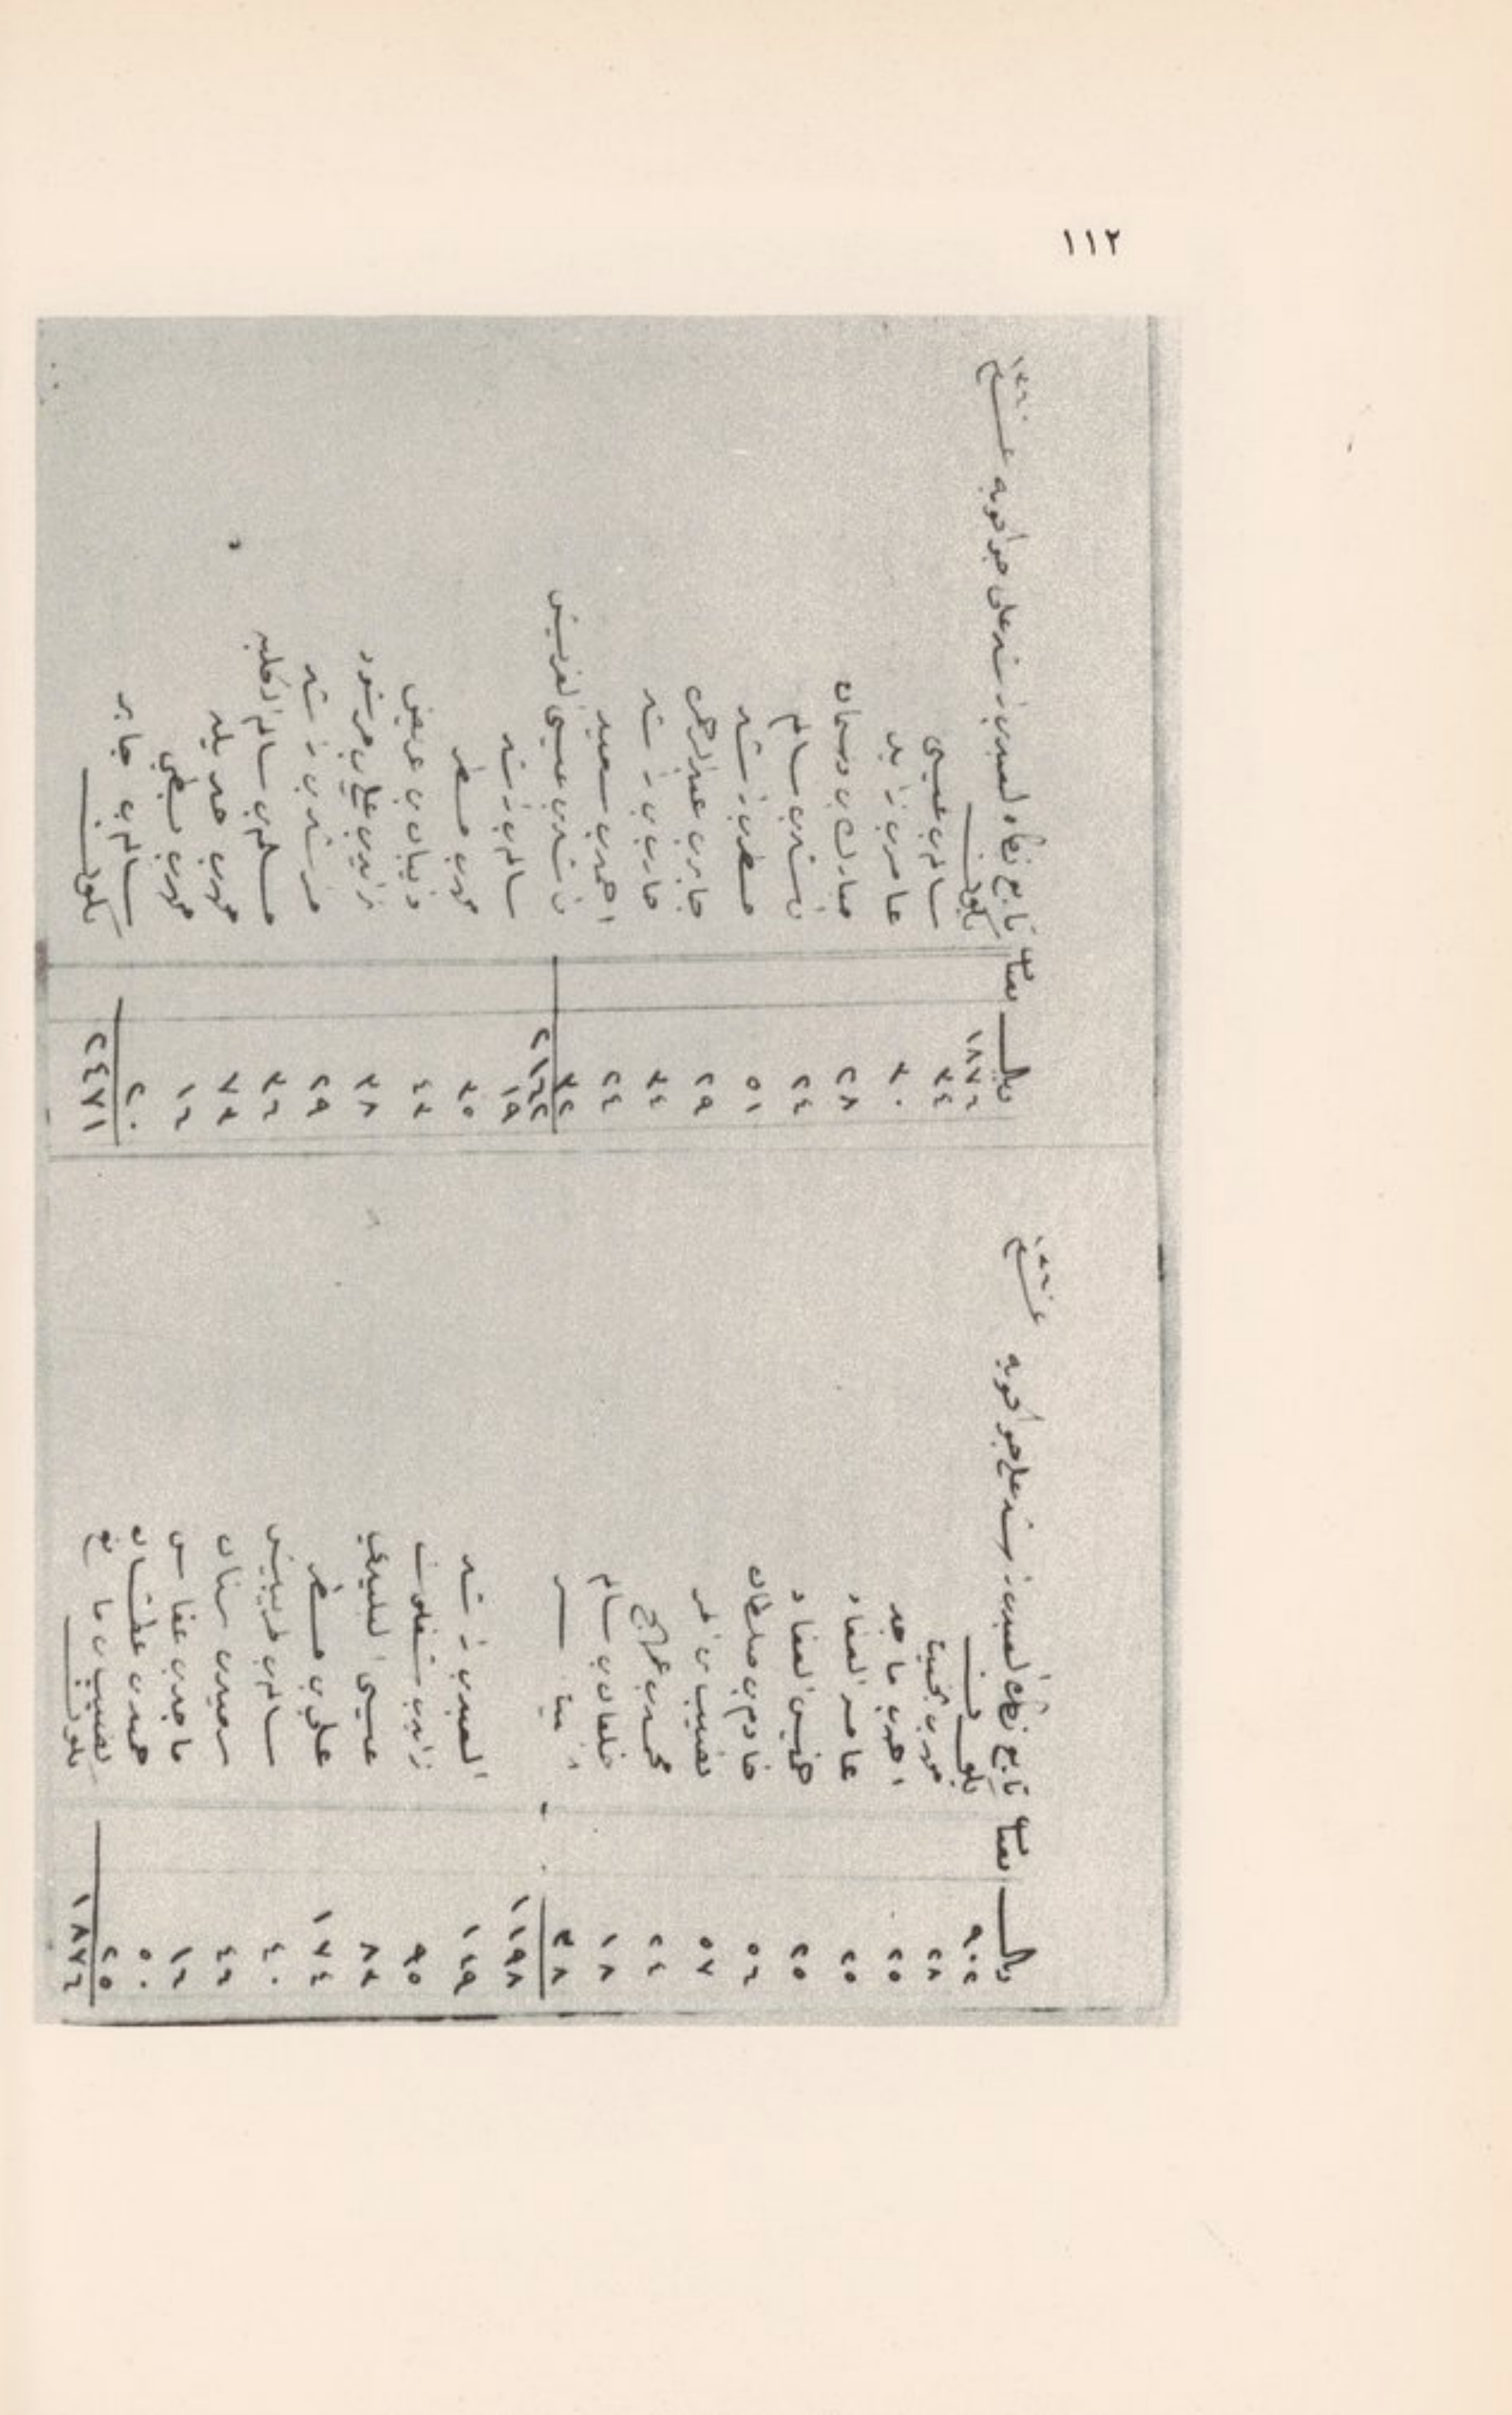 ١١٢
ريال بيان تابع نكاد العبد بن راشد على جو اخويه ١٣٦٠
٩٠٢ بلوف
٢٨ محمد بن بخيت
٢٥ احمد بن ماجد
٢٥ عامر العفاد
٢٥ خميس العفاد
٥٦ خادم بن سلطان
٥٧ نصيب بن
٢٤ محمد بن
١٨ خلفان بن سالم
٣٨
١١٩٨
١٤٩ العبد بن راشد
٩٥ زايد بن شفلوت
٨٣ عيسى البليدي
١٧٤ علي بن مسطر
٤٠ سالم بن
٤٦ سعيد بن سنان
١٦ ماجد بن عفاس
٥٠ حمد بن عطشان
٢٥ نصيب بن مانع
١٨٧٦ بلوف
ريال بيان تابع نكاد العبد بن راشد على جو اخويه ١٣٦٠
١٨٧٦ بلوف
٣٤ سالم بن عيسى
٣٠ عامر بن زايد
٢٨ مبارك بن وسمان
٢٤ راشد بن سالم
٥١ مسطر بن راشد
٢٩ جابر بن عبدالرحمن
٣٤ حارب بن راشد
٢٤ احمد بن سعيد
٣٢ راشد بن عيسى
٢١٦٢
١٩ سالم بن راشد
٣٥ محمد بن مسطر
٤٣ ذيبان بن عريض
٣٨ زايد بن علي بن مرشود
٢٩ مرشد بن راشد
٣٦ مسلم بن سالم
٧٣ محمد بن حمد
١٦ محمد بن
٢٠ سالم بن جابر
٢٤٧١ بلوف